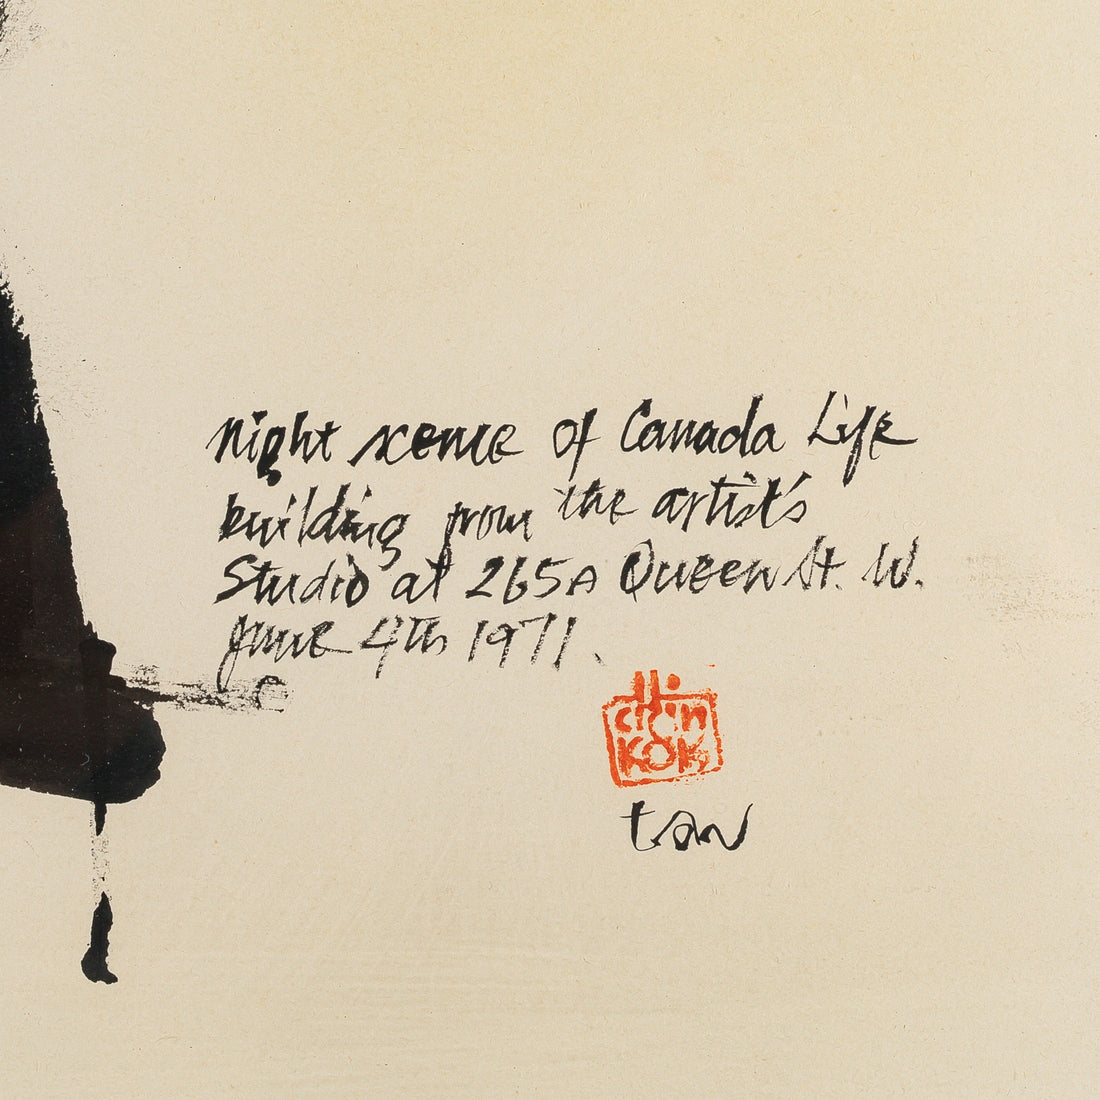 night scene of Canada Life
building from the artist's
Studio at 265A Queen St. W.
June 4th 1971.
chan
KOK
tan